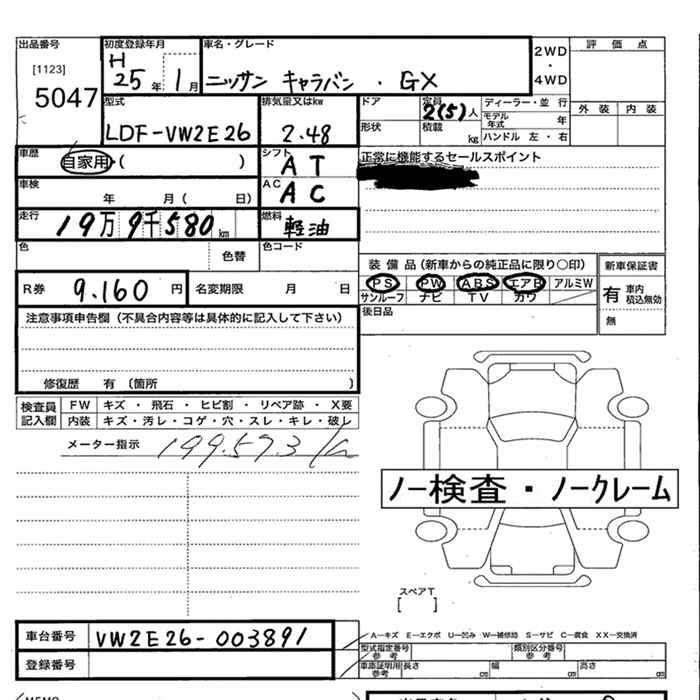 出品番号
[1123]
5047
初度登録年月
H 25年 1月
車名・グレード
ニッサン キャラバン ・ GX
2WD
・
4WD
評価点
外装 内装
型式
LDF-VW2E26
排気量又はkw
2.48
ドア
定員
2(5)人
ディーラー・並行
モデル年式 年
形状
積載 kg
ハンドル 左・右
車歴
自家用・( )
シフト
AT
正常に機能するセールスポイント
車検
年 月( 日)
AC
AC
走行
19万9千580km
燃料
軽油
色
色替
色コード
装備品(新車からの純正品に限り○印)
新車保証書
PS PW ABS エアB アルミW
サンルーフ ナビ TV カワ
有 車内積込無効
無
後日品
R券 9.160円
名変期限 月 日
注意事項申告欄(不具合内容等は具体的に記入して下さい)
修復歴 有(箇所 )
検査員記入欄
FW キズ・飛石・ヒビ割・リペア跡・X要
内装 キズ・汚レ・コゲ・穴・スレ・キレ・破レ
メーター指示 199.573
ノー検査・ノークレーム
スペアT
[ ]
A―キズ E―エクボ U―凹み W―補修跡 S―サビ C―腐食 XX―交換済
車台番号 VW2E26-003891
型式指定番号 参考
類別区分番号 参考
登録番号
車庫証明用 参考
長さ cm 幅 cm 高さ cm